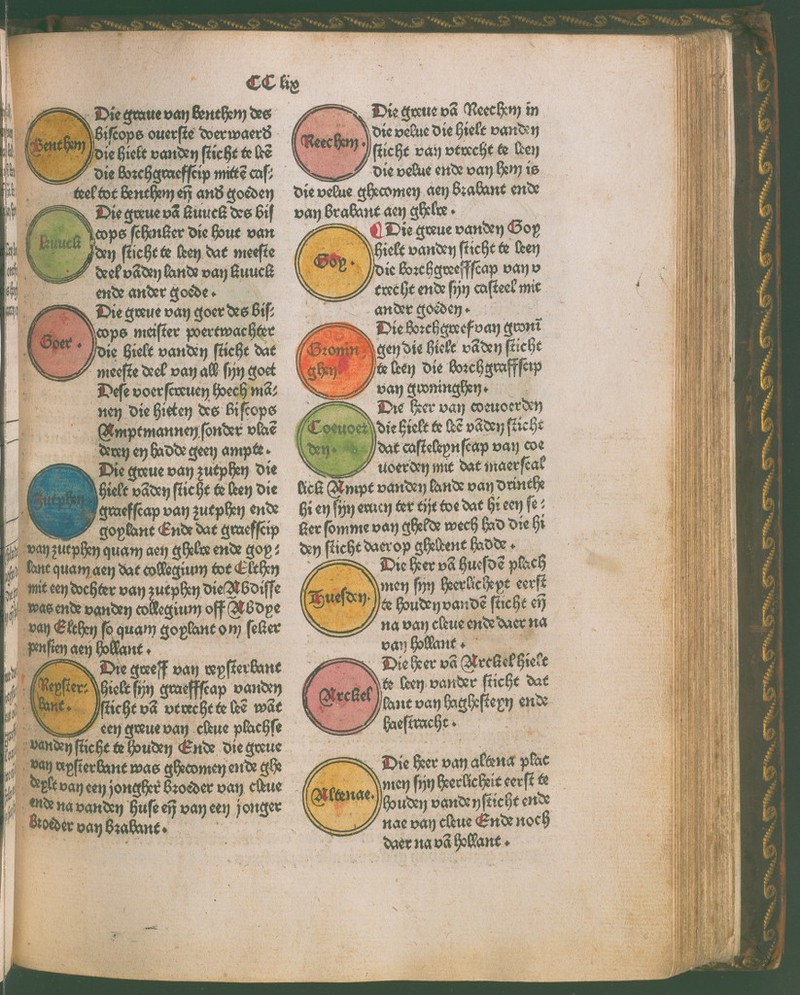 CC lix
Benthem
Die graue van benthem des
biscops ouerste doerwaerd
die hielt vanden sticht te lee͂
die borchgraefscip mitte͂ cas⸗
teel tot benthem en͂ and͛ goeden
kuuck
Die graue va͂ kuuck des bis
cops schenker die hout van
den sticht te leen dat meeste
deel va͂den lande van kuuck
ende ander goede.
Goer.
Die graue van goer des bis⸗
cops meister poertwachter
die hielt vanden sticht dat
meeste deel van all sijn goet
Dese voerscreuen hoech ma͂⸗
nen die hieten des biscops
Amptmannen sonder vlae͂
deren en hadde geen ampte.
Zutphen
Die graue van zutphen die
hielt va͂den sticht te leen die
graefscap van zutphen ende
goylant Ende dat graefscip
van zutphen quam aen ghelre ende goy⸗
lant quam aen dat collegium tot Elthen
mit een dochter van zutphen die Abdisse
was ende vanden collegium off Abdye
van Elthen so quam goylant om seker
pensien aen hollant.
Reyster⸗
bant.
Die greeff van reysterbant
hielt sijn graeffscap vanden
sticht va͂ vtrecht te lee͂ wa͂t
een graue van cleue plachse
vanden sticht te houden Ende die graue
van reysterbant was ghecomen ende ghe
deylt van een jongher broeder van cleue
ende na vanden huse en͂ van een jonger
broeder van brabant.
Reechem.
Die graue va͂ Reechem in
die velue die hielt vanden
sticht van vtrecht te leen
die velue ende van hem is
die velue ghecomen aen brabant ende
van brabant aen ghelre.
Goy.
¶ Die graue vanden Goy
hielt vanden sticht te leen
die borchgreeffscap van v
trecht ende sijn casteel mit
ander goeden.
Gronin⸗
ghen
Die borchgreef van groni͂
gen die hielt va͂den sticht
te leen die borchgraffscip
van groninghen.
Coeuoer
den.
Die heer van coeuoerden
die hielt te lee͂ va͂den sticht
dat casteleynscap van coe
uoerden mit dat maerscal
lick Ampt vanden lande van drinthe
hi en sijn eruen ter tijt toe dat hi een se⸗
ker somme van ghelde wech had die hi
den sticht daer op gheleent hadde.
Huesden.
Die heer va͂ huesde͂ plach
men sijn heerlicheyt eerst
te houden vande͂ sticht en͂
na van cleue ende daer na
van hollant.
Arckel
Die heer va͂ Arckel hielt
te leen vander sticht dat
lant van haghesteyn ende
haestrecht.
Altenae.
Die heer van altena plac
men sijn heerlicheit eerst te
houden vanden sticht ende
nae van cleue Ende noch
daer na va͂ hollant.